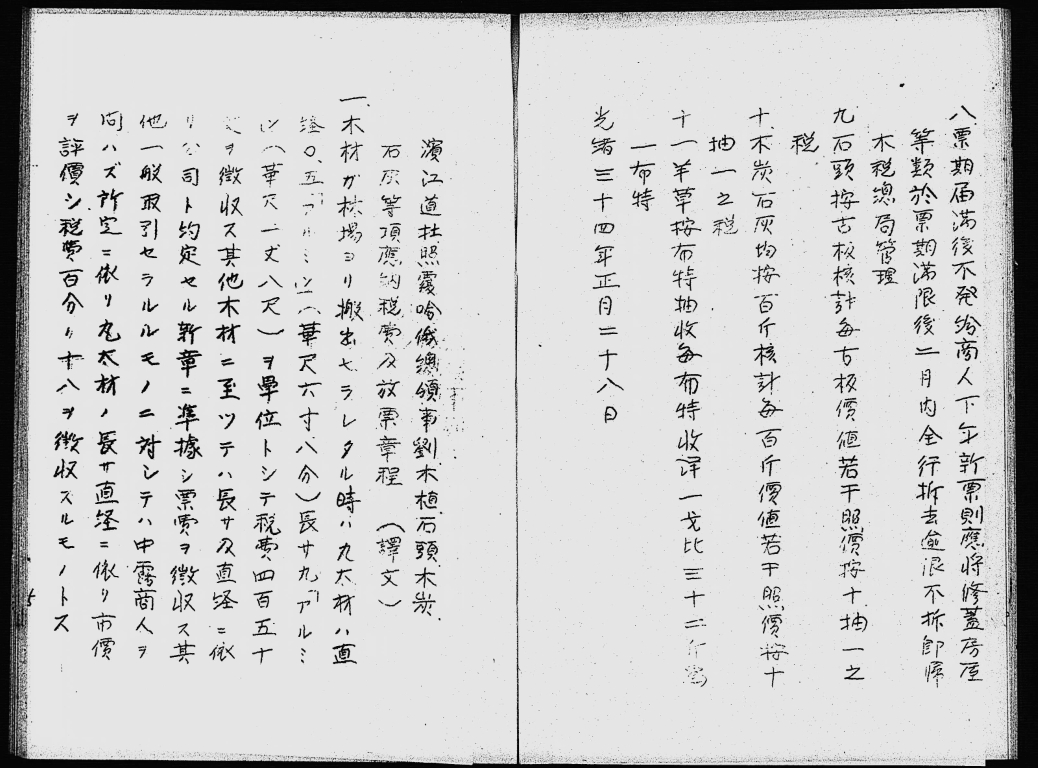 八票期届滿後不発給商人下年新票則應将修蓋房屋
等類於票期滿限後二月内全行拆去逾限不拆即帰
木税總局管理
九石頭按古板核計每古板價値若干照價按十抽一之
税
十木炭石灰均按百斤核計每百斤價値若干照價按十
抽一之税
十一羊草按布特抽收每布特收洋一戈比三十二斤為
一布特
光緒三十四年正月二十八日
濱江道杜照覆哈俄總領事劉木植石頭木炭
石灰等項應納税費及放票章程（譯文）
一、木材ガ林場ヨリ搬出セラレタル時ハ丸太材ハ直
経〇、五「アルミン」（華尺六寸八分）長サ九「アルミ
ン」（華尺一丈八尺）ヲ單位トシテ税費四百五十
ヲ徴収ス其他木材ニ至ツテハ長サ及直経ニ依
リ公司ト約定セル新章ニ準據シ票費ヲ徴収ス其
他一般取引セラルルモノニ対シテハ中露商人ヲ
問ハズ所定ニ依リ丸太材ノ長サ直経ニ依リ市價
ヲ評價シ税費百分ノ十八ヲ徴収スルモノトス